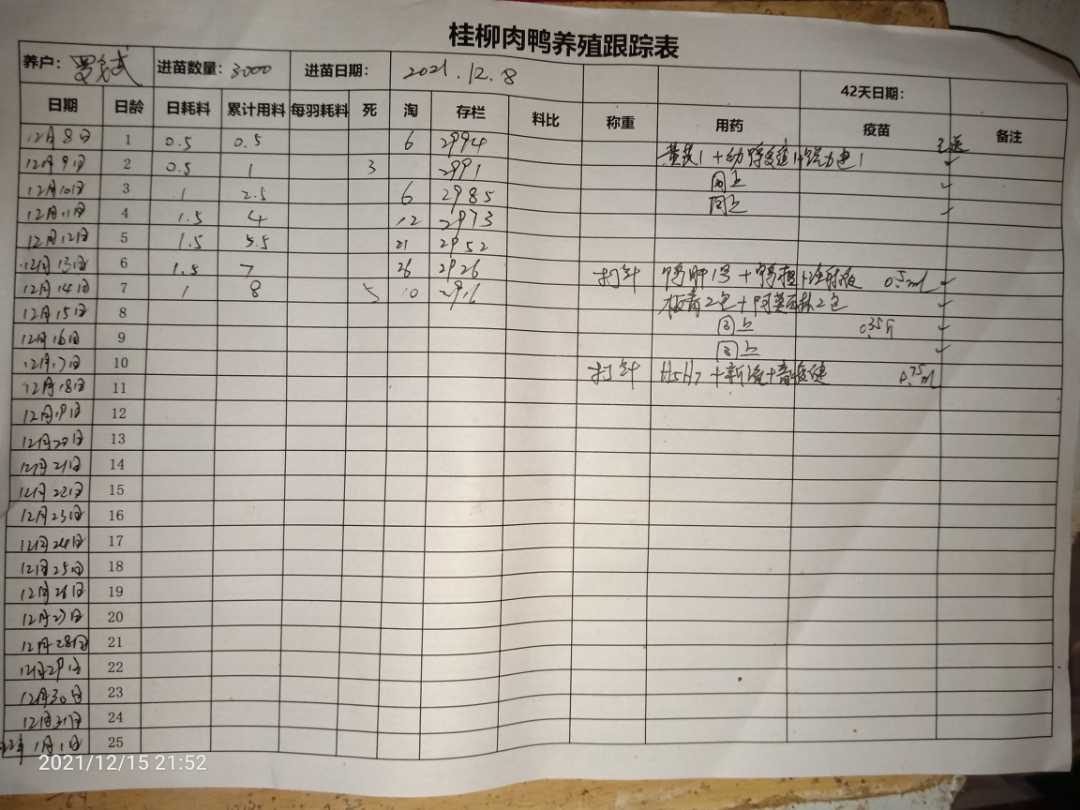 桂柳肉鸭养殖跟踪表
养户： 进苗数量：3000 进苗日期： 2021.12.8 42天日期：
日期 日龄 日耗料 累计用料 每羽耗料 死 淘 存栏 料比 称重 用药 疫苗 备注
12月8日 1 0.5 0.5 6 2994
12月9日 2 0.5 1 3 2991 ✓
12月10日 3 1 2.5 6 2985 同上 ✓
12月11日 4 1.5 4 12 2973 同上 ✓
12月12日 5 1.5 5.5 21 2952
12月13日 6 1.5 7 26 2926 打针 0.5ml ✓
12月14日 7 1 8 5 10 2916 ✓
12月15日 8 同上 ✓
12月16日 9 同上 ✓
12月17日 10 打针 H5H7+新流+ 0.75ml
12月18日 11
12月19日 12
12月20日 13
12月21日 14
12月22日 15
12月23日 16
12月24日 17
12月25日 18
12月26日 19
12月27日 20
12月28日 21
12月29日 22
12月30日 23
12月31日 24
1月1日 25
2021/12/15 21:52